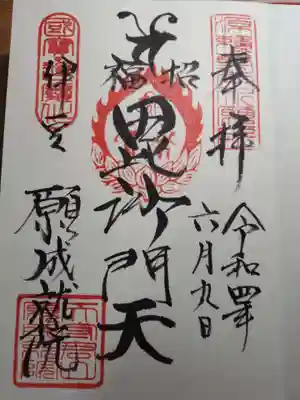 奉拝
令和四年
六月九日
招福
毘沙門天
伊豆
願成就院